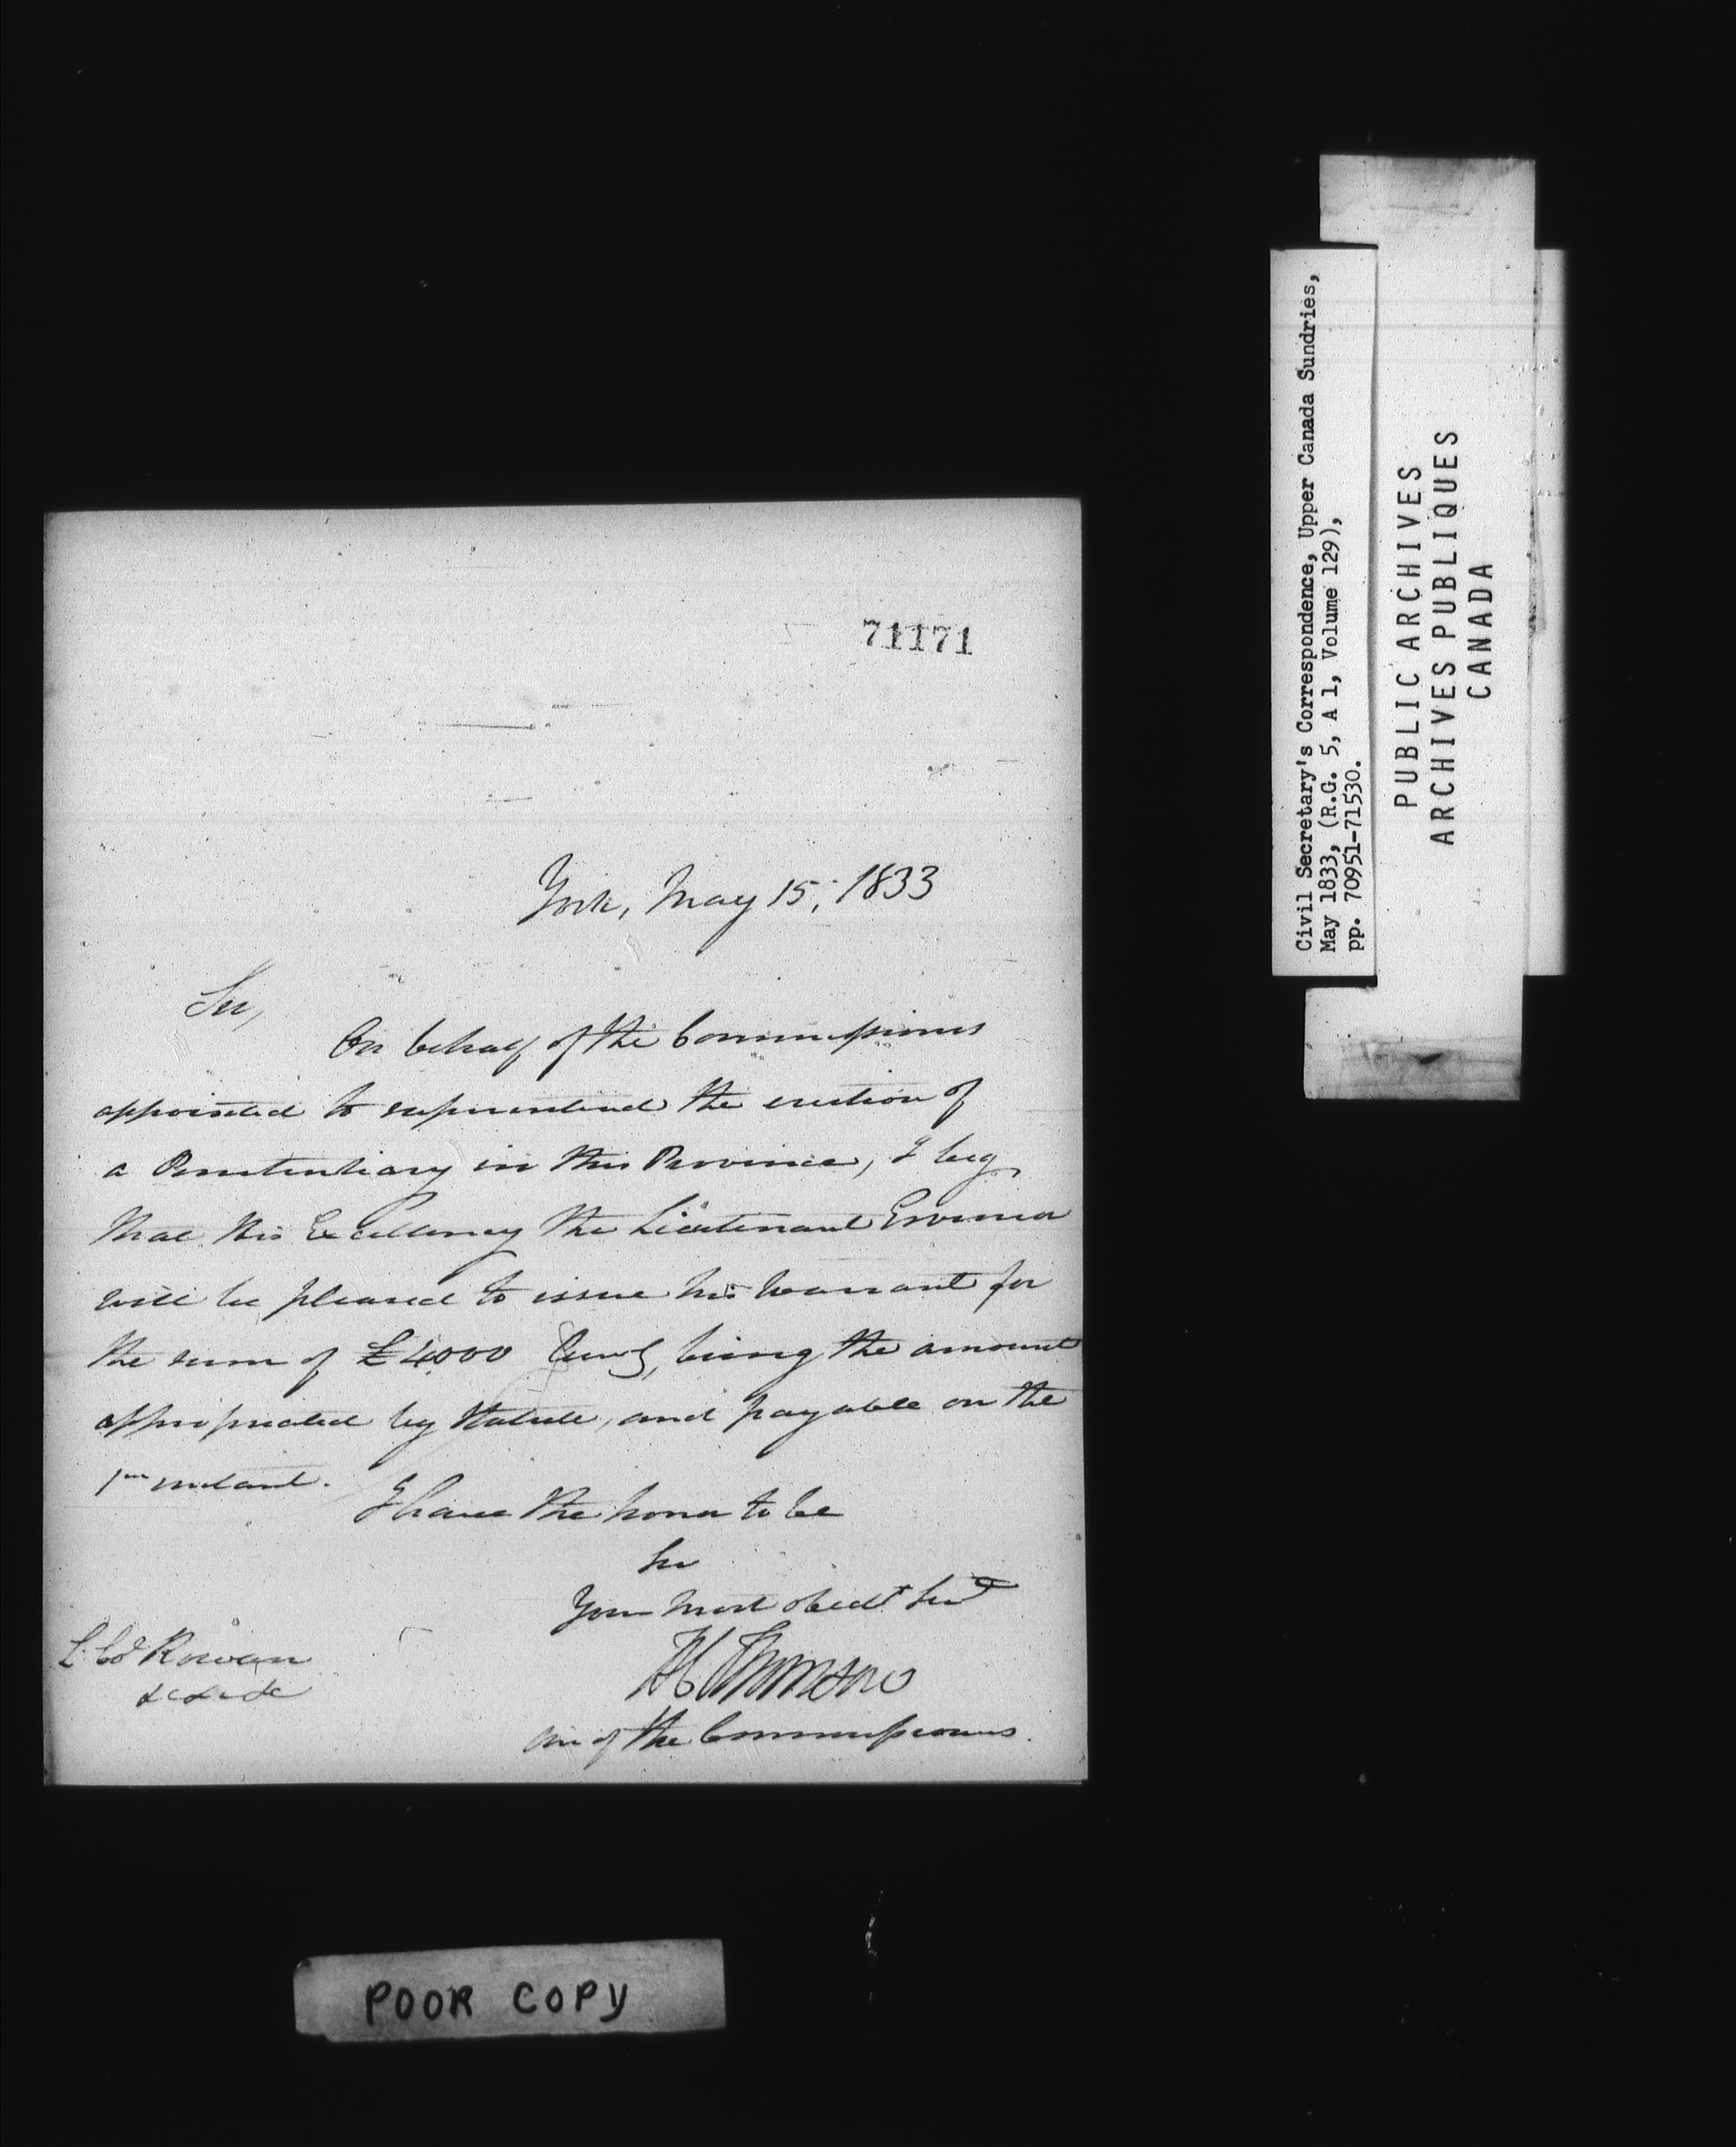 71171
York, May 15, 1833
Sir,
On behalf of the Commissioners
appointed to superintend the erection of
a Penitentiary in this Province, I beg
that His Excellency the Lieutenant Governor
will be pleased to issue his warrant for
the sum of £4000 Curr^y, being the amount
appropriated by Statute, and payable on the
1st instant.
I have the honor to be
Sir
Your most obedt Servt
H C Thomson
one of the Commissioners.
Lt. Col Rowan
&c &c &c
Civil Secretary's Correspondence, Upper Canada Sundries,
May 1833, (R.G. 5, A 1, Volume 129),
pp. 70951-71530.
PUBLIC ARCHIVES
ARCHIVES PUBLIQUES
CANADA
POOR COPY